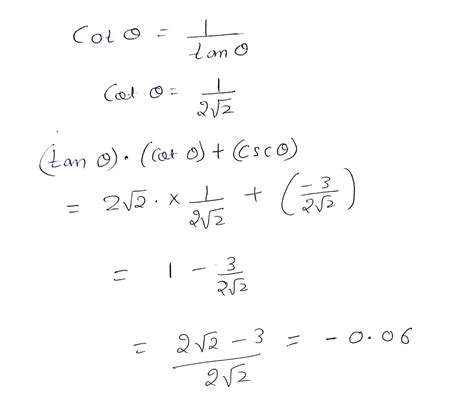 Cot θ = 1/tan θ
Cot θ = 1/2√2
(tan θ) · (Cot θ) + (Csc θ)
= 2√2 · × 1/2√2 + (-3/2√2)
= 1 - 3/2√2
= 2√2 - 3/2√2 = - 0.06